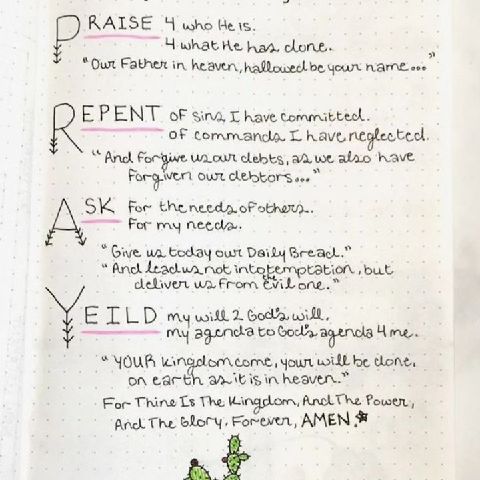 PRAISE 4 who He is.
4 what He has done.
"Our Father in heaven, hallowed be your name..."
REPENT of sins I have committed.
of commands I have neglected.
"And forgive us our debts, as we also have
forgiven our debtors..."
ASK for the needs of others.
for my needs.
"Give us today our Daily Bread."
"And lead us not into temptation, but
deliver us from the Evil one."
YEILD my will 2 God's will.
my agenda to God's agenda 4 me.
"YOUR kingdom come, your will be done,
on earth as it is in heaven."
For Thine Is The Kingdom, And The Power,
And The Glory, Forever, AMEN.